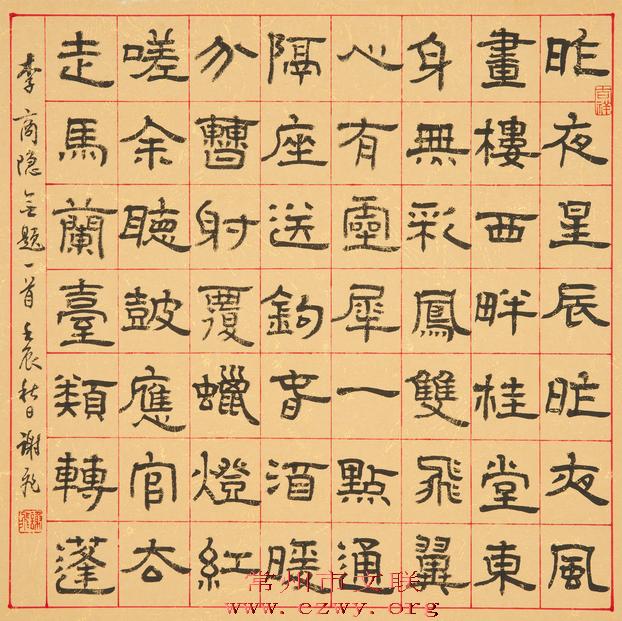 昨夜星辰昨夜風
畫樓西畔桂堂東
身無彩鳳雙飛翼
心有靈犀一點通
隔座送鉤春酒暖
分曹射覆蠟燈紅
嗟余聽鼓應官去
走馬蘭臺類轉蓬
李商隐無题一首壬辰秋日谢飞
吉祥
常州市文联
www.czwy.org